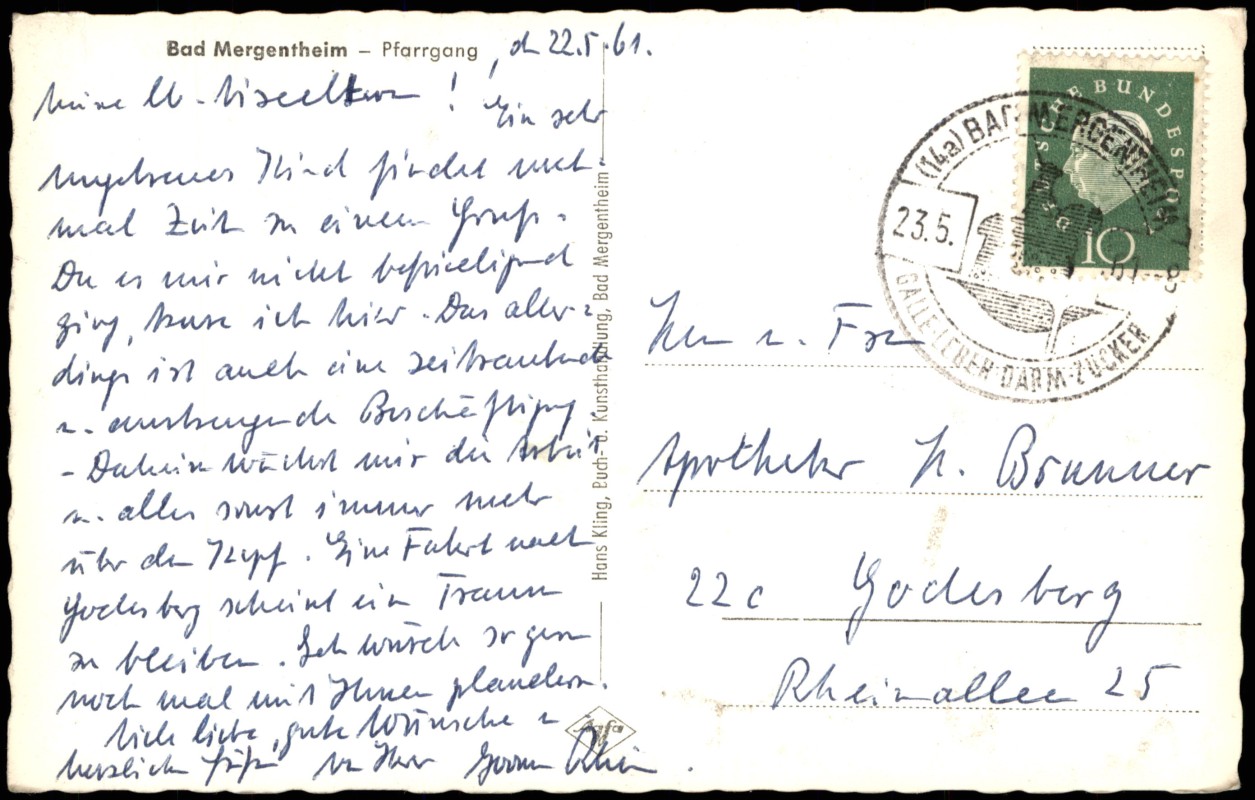 Bad Mergentheim – Pfarrgang, d 22.5.61.
Meine !
Ein sehr
ungetreues Kind findet auch
mal Zeit zu einem Gruß.
Da es mir nicht befriedigend
ging, kure ich hier. Das aller-
dings ist auch eine zeitraubende
u. anstrengende Beschäftigung.
- Daheim wächst mir die Arbeit
u. alles sonst immer mehr
über den Kopf. Eine Fahrt nach
Godesberg scheint ein Traum
zu bleiben. Ich würde so gern
noch mal mit Ihnen plaudern.
Viele liebe, gute Wünsche u
herzliche Grüße von Ihrer
Hans Kling, Buch- u. Kunsthandlung, Bad Mergentheim
DEUTSCHE BUNDESPOST
10
(14a) BAD MERGENTHEIM
23.5.61
GALLE·LEBER·DARM·ZUCKER
Herrn u. Frau
Apotheker H. Brunner
22c Godesberg
Rheinallee 25